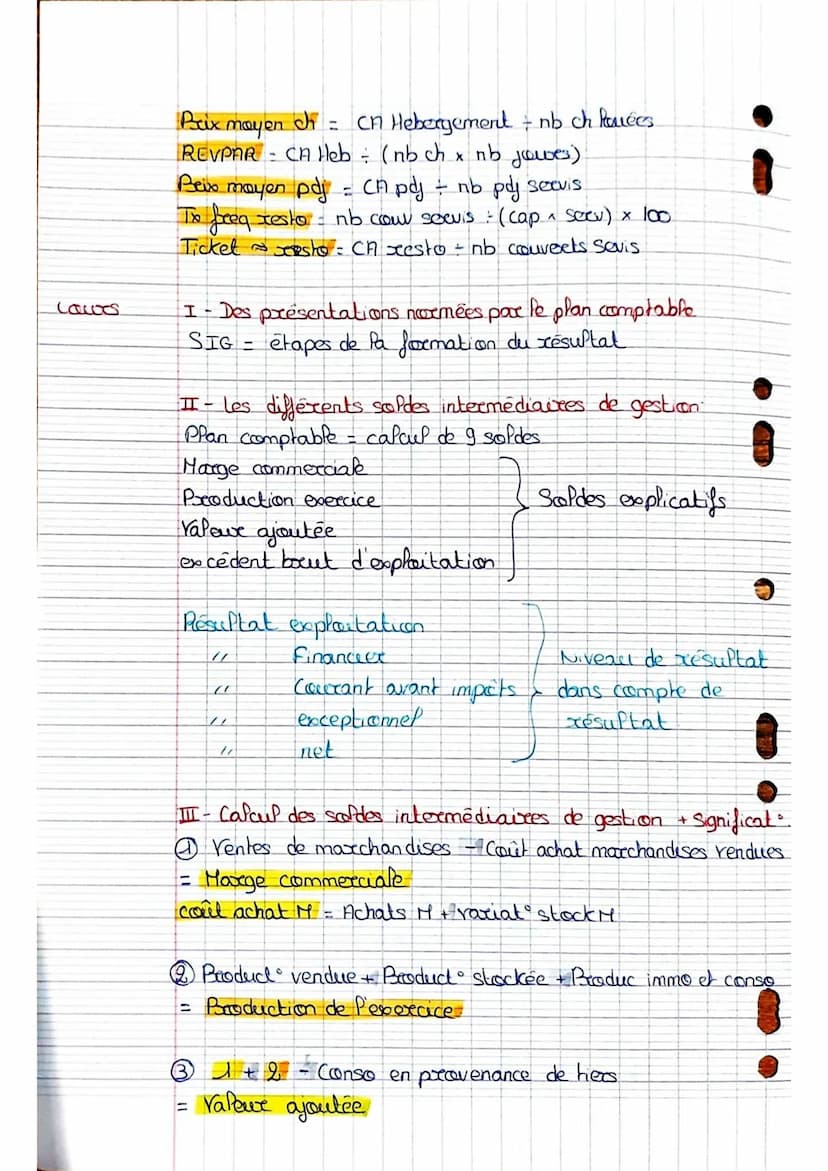 Prix moyen ch = CA Hebergement ÷ nb ch louées
REVPAR = CA Heb ÷ (nb ch x nb joures)
Prix moyen pdj = CA pdj ÷ nb pdj servis
Tx freq resto = nb couv servis ÷ (cap x serv) x 100
Ticket resto = CA resto ÷ nb couverts servis
Cours
I - Des présentations normées par le plan comptable
SIG = étapes de la formation du résultat
II - les différents soldes intermédiaires de gestion
Plan comptable = calcul de 9 soldes
Marge commerciale
Production exercice
Soldes explicatifs
Valeur ajoutée
excédent brut d'exploitation
Résultat exploitation
" Financier
Niveau de résultat
" Courant avant impôts
dans compte de
" exceptionnel
résultat
" net
III - Calcul des soldes intermédiaires de gestion + significat°
① Ventes de marchandises - Coût achat marchandises vendues
= Marge commerciale
coût achat M = Achats M + variat° stock M
② Product° vendue + Product° stockée + Produc immo et conso
= Production de l'exercice
③ 1 + 2 - Conso en provenance de tiers
= Valeur ajoutée